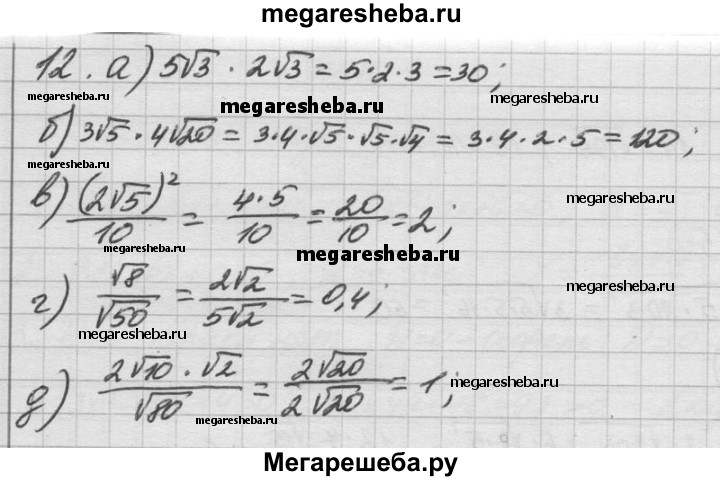 megaresheba.ru
12. а) 5√3 · 2√3 = 5·2·3 = 30;
megaresheba.ru megaresheba.ru megaresheba.ru
б) 3√5 · 4√20 = 3·4·√5·√5·√4 = 3·4·2·5 = 120;
megaresheba.ru
в) (2√5)²/10 = 4·5/10 = 20/10 = 2;
megaresheba.ru
megaresheba.ru megaresheba.ru
г) √8/√50 = 2√2/5√2 = 0,4;
megaresheba.ru
megaresheba.ru
д) 2√10 · √2/√80 = 2√20/2√20 = 1;
megaresheba.ru
megaresheba.ru
Мегарешеба.ру